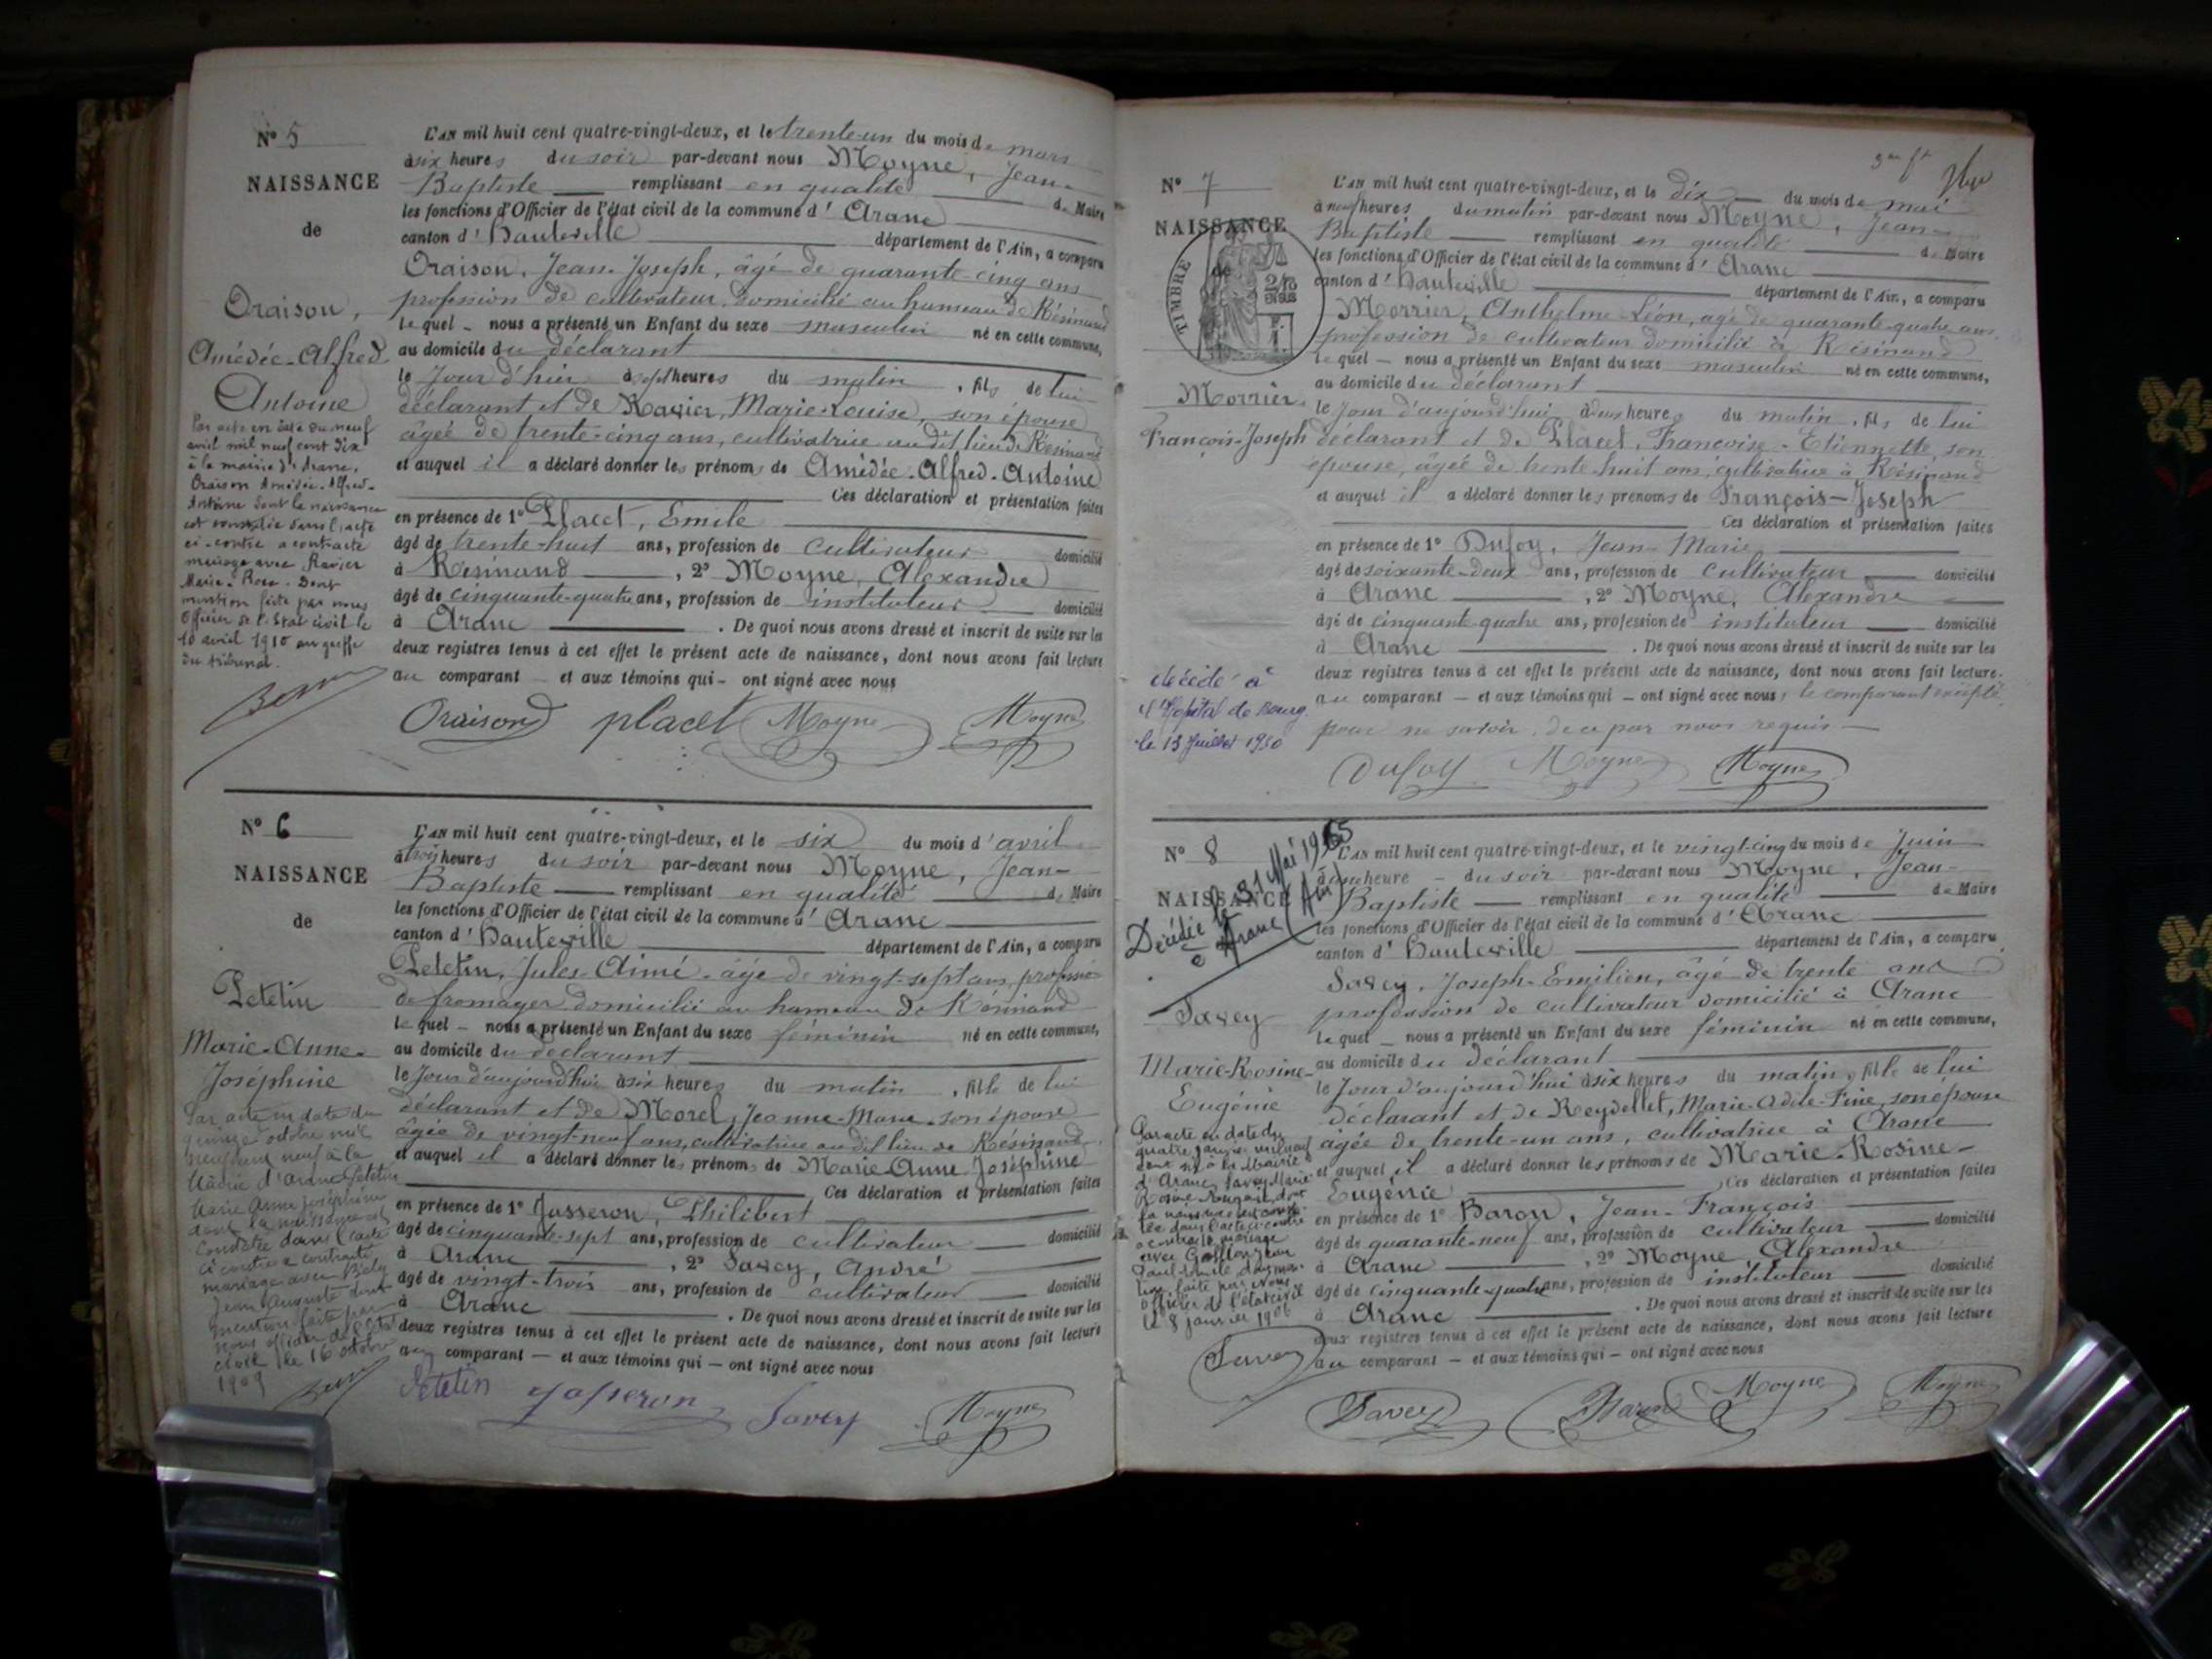 N° 5
NAISSANCE
de
Oraison,
Amédée-Alfred
Antoine
Par acte en date du neuf
avril mil neuf cent dix
à la mairie d'Aranc,
Oraison Amédée-Alfred-
Antoine dont la naissance
est constatée dans l'acte
ci-contre a contracté
mariage avec Ravier
Marie-Rose. Dont
mention faite par nous
Officier de l'Etat civil le
10 avril 1910 au greffe
du tribunal.
L'AN mil huit cent quatre-vingt-deux, et le trente-un du mois de mars
à six heures du soir par-devant nous Moyne, Jean-
Baptiste remplissant en qualité de Maire
les fonctions d'Officier de l'état civil de la commune d'Aranc
canton d'Hauteville département de l'Ain, a comparu
Oraison, Jean-Joseph, âgé de quarante-cinq ans
profession de cultivateur domicilié au hameau de Résinand
lequel nous a présenté un Enfant du sexe masculin né en cette commune,
au domicile du déclarant
le Jour d'hier à sept heures du matin, fils de lui
déclarant et de Ravier, Marie-Louise, son épouse
âgée de trente-cinq ans, cultivatrice au dit lieu de Résinand
et auquel il a déclaré donner les prénoms de Amédée-Alfred-Antoine
Ces déclaration et présentation faites
en présence de 1° Placet, Emile
âgé de trente-huit ans, profession de cultivateur domicilié
à Résinand, 2° Moyne, Alexandre
âgé de cinquante-quatre ans, profession de instituteur domicilié
à Aranc. De quoi nous avons dressé et inscrit de suite sur les
deux registres tenus à cet effet le présent acte de naissance, dont nous avons fait lecture
au comparant et aux témoins qui ont signé avec nous
Oraison placet Moyne Moyne
N° 6
NAISSANCE
de
Petetin
Marie-Anne-
Joséphine
Par acte en date du
quinze octobre mil
neuf cent neuf à la
Mairie d'Aranc Petetin
Marie Anne Joséphine
dont la naissance est
constatée dans l'acte
ci contre a contracté
mariage avec
Jean Auguste dont
mention faite par
nous officier de l'état
civil le 16 octobre
1909
L'AN mil huit cent quatre-vingt-deux, et le six du mois d'avril
à trois heures du soir par-devant nous Moyne, Jean-
Baptiste remplissant en qualité de Maire
les fonctions d'Officier de l'état civil de la commune d'Aranc
canton d'Hauteville département de l'Ain, a comparu
Petetin, Jules-Aimé, âgé de vingt-sept ans, profession
de fromager domicilié au hameau de Résinand
lequel nous a présenté un Enfant du sexe féminin né en cette commune,
au domicile du déclarant
le Jour d'aujourd'hui à six heures du matin, fille de lui
déclarant et de Morel, Jeanne-Marie, son épouse
âgée de vingt-neuf ans, cultivatrice au dit lieu de Résinand
et auquel il a déclaré donner les prénoms de Marie-Anne Joséphine
Ces déclaration et présentation faites
en présence de 1° Jasseron, Philibert
âgé de cinquante-sept ans, profession de cultivateur domicilié
à Aranc, 2° Savey, André
âgé de vingt-trois ans, profession de cultivateur domicilié
à Aranc. De quoi nous avons dressé et inscrit de suite sur les
deux registres tenus à cet effet le présent acte de naissance, dont nous avons fait lecture
au comparant et aux témoins qui ont signé avec nous
Petetin Jasseron Savey Moyne
N° 7
NAISSANCE
de
TIMBRE
Morrier
François-Joseph
décédé à
l'Hôpital de Bourg
le 13 Juillet 1950
L'AN mil huit cent quatre-vingt-deux, et le dix du mois de mai
à neuf heures du matin par-devant nous Moyne, Jean-
Baptiste remplissant en qualité de Maire
les fonctions d'Officier de l'état civil de la commune d'Aranc
canton d'Hauteville département de l'Ain, a comparu
Morrier, Anthelme-Léon, âgé de quarante-quatre ans
profession de cultivateur domicilié à Résinand
lequel nous a présenté un Enfant du sexe masculin né en cette commune,
au domicile du déclarant
le Jour d'aujourd'hui à deux heures du matin, fils de lui
déclarant et de Placet, Françoise-Etiennette, son
épouse, âgée de trente-huit ans, cultivatrice à Résinand
et auquel il a déclaré donner les prénoms de François-Joseph
Ces déclaration et présentation faites
en présence de 1° Dufoy, Jean-Marie
âgé de soixante-deux ans, profession de cultivateur domicilié
à Aranc, 2° Moyne, Alexandre
âgé de cinquante-quatre ans, profession de instituteur domicilié
à Aranc. De quoi nous avons dressé et inscrit de suite sur les
deux registres tenus à cet effet le présent acte de naissance, dont nous avons fait lecture
au comparant et aux témoins qui ont signé avec nous, le comparant excepté
pour ne savoir, de ce par nous requis
Dufoy Moyne Moyne
N° 8
NAISSANCE
Décédée le 31 Mai 1965
à Aranc (Ain)
Savey
Marie-Rosine-
Eugénie
Par acte en date du
quatre janvier mil neuf
cent six à la Mairie
d'Aranc, Savey Marie
Rosine Eugénie, dont
la naissance est consta-
tée dans l'acte ci-contre
a contracté mariage
avec
Paul dont men-
tion faite par Nous
officier de l'état civil
le 8 janvier 1906
Savey
L'AN mil huit cent quatre-vingt-deux, et le vingt-cinq du mois de Juin
à une heure du soir par-devant nous Moyne, Jean-
Baptiste remplissant en qualité de Maire
les fonctions d'Officier de l'état civil de la commune d'Aranc
canton d'Hauteville département de l'Ain, a comparu
Savey, Joseph-Emilien, âgé de trente ans
profession de cultivateur domicilié à Aranc
lequel nous a présenté un Enfant du sexe féminin né en cette commune,
au domicile du déclarant
le Jour d'aujourd'hui à six heures du matin, fille de lui
déclarant et de Reydellet, Marie-Adèle-Fine, son épouse
âgée de trente-un ans, cultivatrice à Aranc
et auquel il a déclaré donner les prénoms de Marie-Rosine-
Eugénie Ces déclaration et présentation faites
en présence de 1° Baron, Jean-François
âgé de quarante-neuf ans, profession de cultivateur domicilié
à Aranc, 2° Moyne, Alexandre
âgé de cinquante-quatre ans, profession de instituteur domicilié
à Aranc. De quoi nous avons dressé et inscrit de suite sur les
deux registres tenus à cet effet le présent acte de naissance, dont nous avons fait lecture
au comparant et aux témoins qui ont signé avec nous
Savey Baron Moyne Moyne